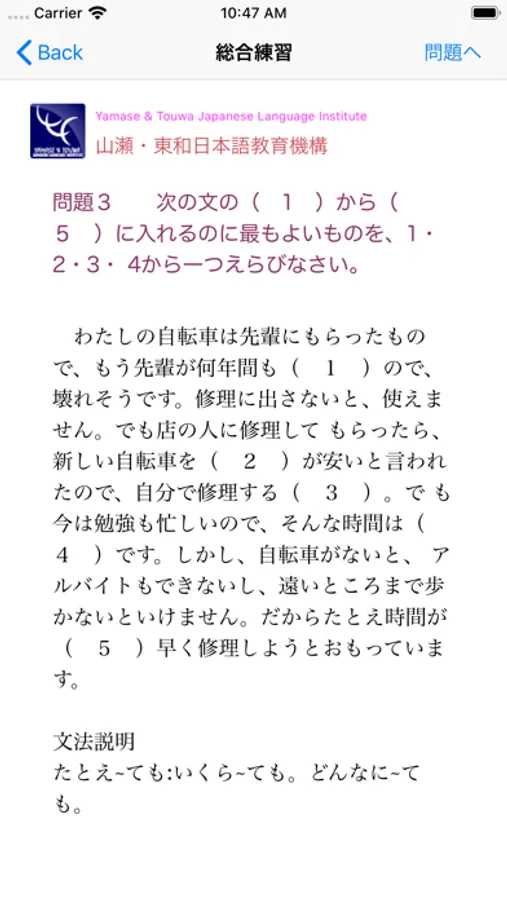 Carrier 10:47 AM
Back 総合練習 問題へ
YAMASE & TOUWA
Yamase & Touwa Japanese Language Institute
山瀬・東和日本語教育機構
問題３　　次の文の（　1　）から（
５　）に入れるのに最もよいものを、1・
2・3・ 4から一つえらびなさい。
わたしの自転車は先輩にもらったもの
で、もう先輩が何年間も（　１　）ので、
壊れそうです。修理に出さないと、使えま
せん。でも店の人に修理して もらったら、
新しい自転車を（　２　）が安いと言われ
たので、自分で修理する（　３　）。で も
今は勉強も忙しいので、そんな時間は（
４　）です。しかし、自転車がないと、 ア
ルバイトもできないし、遠いところまで歩
かないといけません。だからたとえ時間が
（　５　）早く修理しようとおもっていま
す。
文法説明
たとえ~ても:いくら~ても。どんなに~て
も。